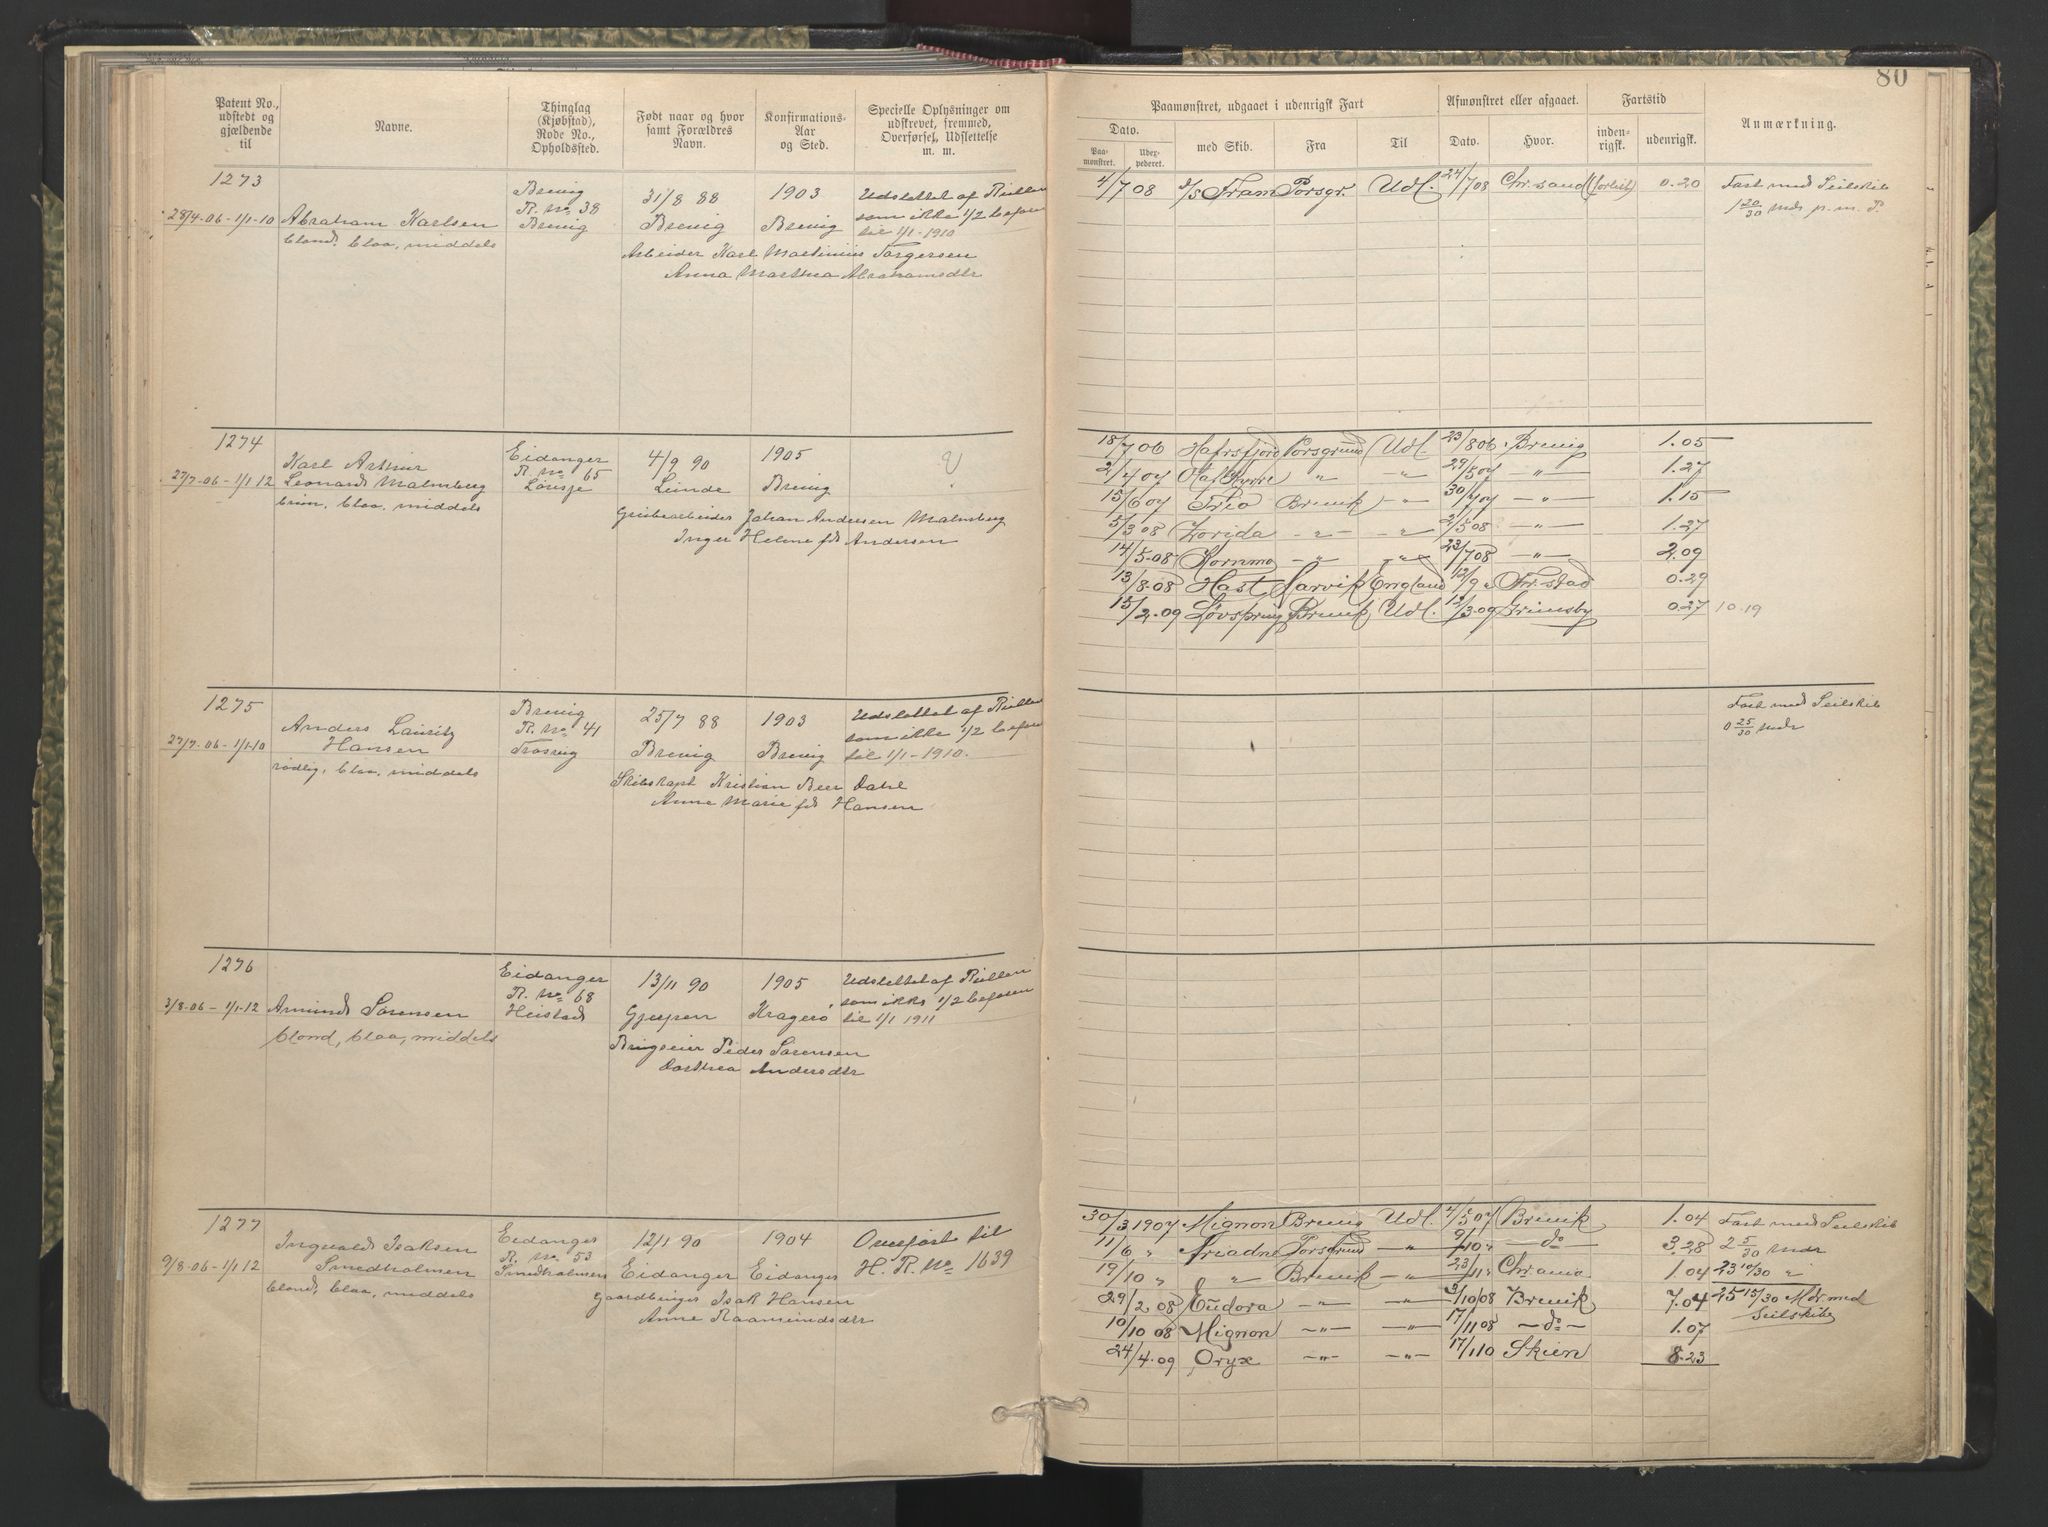 80
Patent No., udstedt og gjældende til
Navne.
Thinglag (Kjøbstad), Rode No., Opholdssted.
Født naar og hvor samt Forældres Navn.
Konfirmations-Aar og Sted.
Specielle Oplysninger om udskrevet, fremmed, Overførsel, Udslettelse m. m.
Paamønstret, udgaaet i udenrigsk Fart
Afmønstret eller afgaaet.
Fartstid
Anmærkning.
Dato.
Paa-mønstret.
Udex-pederet.
med Skib.
Fra
Til
Dato.
Hvor.
inden-rigsk.
udenrigsk.
1273
28/4-06-1/1-10
Abraham Karlsen
blond, blaa, middels
Brevig
R. No 38
Brevig
31/8 88
Brevig
1903
Brevig
Udslettet af Rullen
som ikke 1/2 befaren
til 1/1-1910
Arbeider Karl Martinius Torgersen
Anna Marthea Abrahamsdtr
4/7 08 d/s Fram Porsgr. Udl. 24/7 08 Chr.sand (forlist) 0.20
Fart med Seilskib
1 20/30 mdr p.m. P.
1274
27/7-06-1/1 12
Karl Arthur
Leonard Malmberg
brun, blaa, middels
Eidanger
R. No 65
4/9 90
1905
Brevig
Johan Andersen Malmberg
Inger Helene fdt Andersen
18/7 06 Hafrsfjord Porsgrund Udl. 23/8 06 Brevig 1.05
2/4 07 Olaf Kyrre " -"- 29/5 07 -"- 1.27
15/6 07 Trio Brevik -"- 30/7 07 -"- 1.15
5/3 08 Zorida -"- -"- 2/5 08 -"- 1.27
14/5-08 Kornmo -"- -"- 23/7 08 -"- 2.09
13/8-08 Hast Narvik England 12/9 " Fr.stad 0.29
15/2-09 Løvspring Brevik Udl. 12/3-09 Grimsby 0.27 10-19
1275
27/7-06-1/1-10
Anders Lauritz
Hansen
rødlig, blaa, middels
Brevig
R. No 41
Trosvig
25/7 88
Brevig
1903
Brevig
Udslettet af Rullen
som ikke 1/2 befaren
til 1/1-1910.
Skibskapt Kristian Beer Dahl
Anne Marie fdt Hansen
Fart med Seilskib
0 25/30 mdr
1276
3/8-06-1/1-12
Amund Sørensen
blond, blaa, middels
Eidanger
R. No 68
Heistad
13/11 90
Gjerpen
1905
Kragerø
Udslettet af Rullen
som ikke 1/2 befaren
til 1/1 1911
Peder Sørensen
Dorthea Andersdtr
1277
9/8-06-1/1 12
Ingvald Isaksen
Smedholmen
blond, blaa, middels
Eidanger
R. No 53
Smedholmen
12/1 90
Eidanger
1904
Eidanger
Overført til
H. R. No 1639
Gaardbruger Isak Hansen
Anne Raamundsdtr
30/3 1907 Mignon Brevig Udl. 4/5 07 Brevik 1.04
11/6 " Ariadne Porsgrund -"- 9/10 " -do- 3.28
19/10 " " " Brevik -"- 23/11 " Chr.ania 1.04
29/2-08 Eudora -"- -"- 3/10 08 Brevik 7.04
10/10 08 Mignon -"- -"- 17/11 08 -do- 1.07
24/4-09 Oryx -"- -"- 17/1 10 Skien 8.23
Fart med Seilskib
2 5/30 mdr
23 10/30 "
25 15/30 Mdr med
Seilskibe